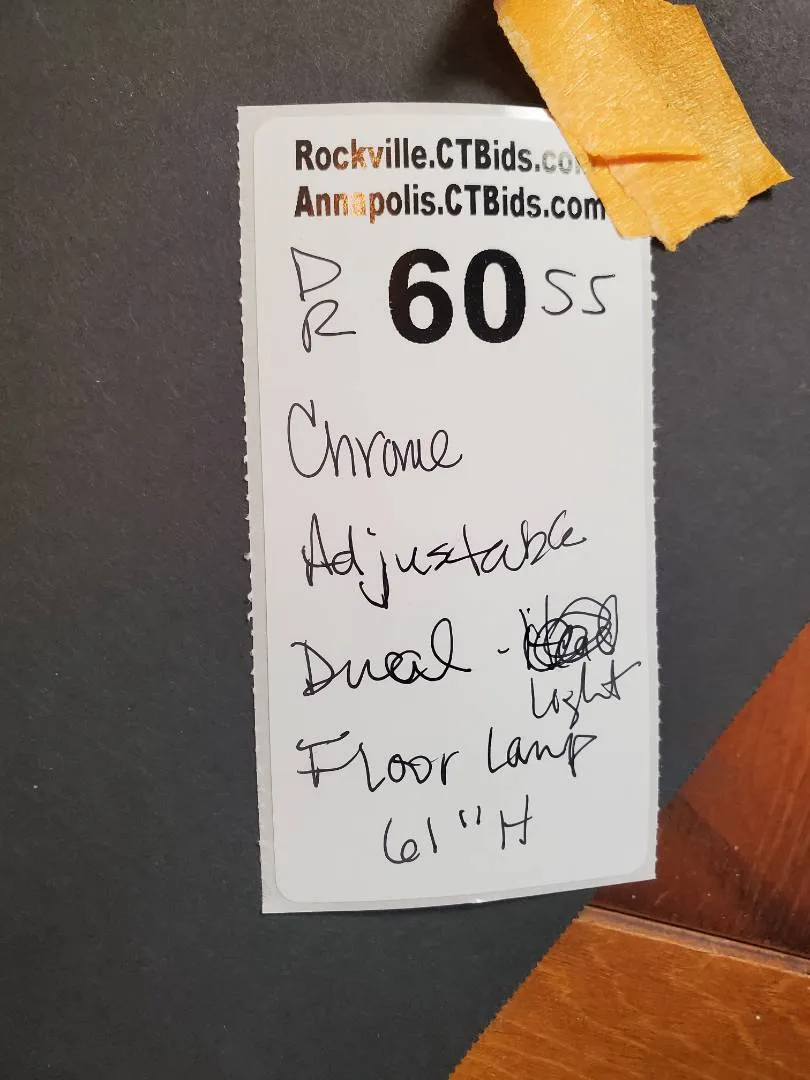 Rockville.CTBids.com
Annapolis.CTBids.com
DR 60 SS
Chrome
Adjustable
Dual -
Light
Floor Lamp
61" H